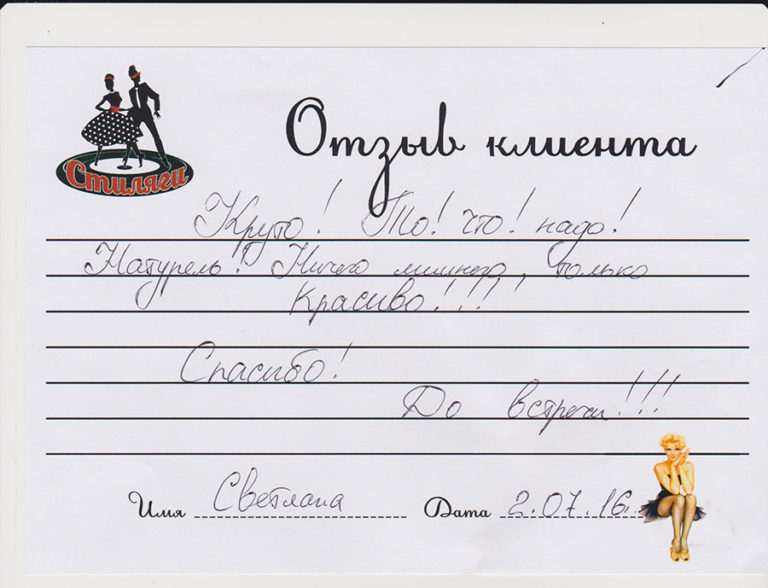 Стиляги
Отзыв клиента
Круто! То! что! надо!
Натурель! Ничего лишнего, только
Красиво!!!!
Спасибо!
До встречи!!!
Имя Светлана Дата 2.07.16.